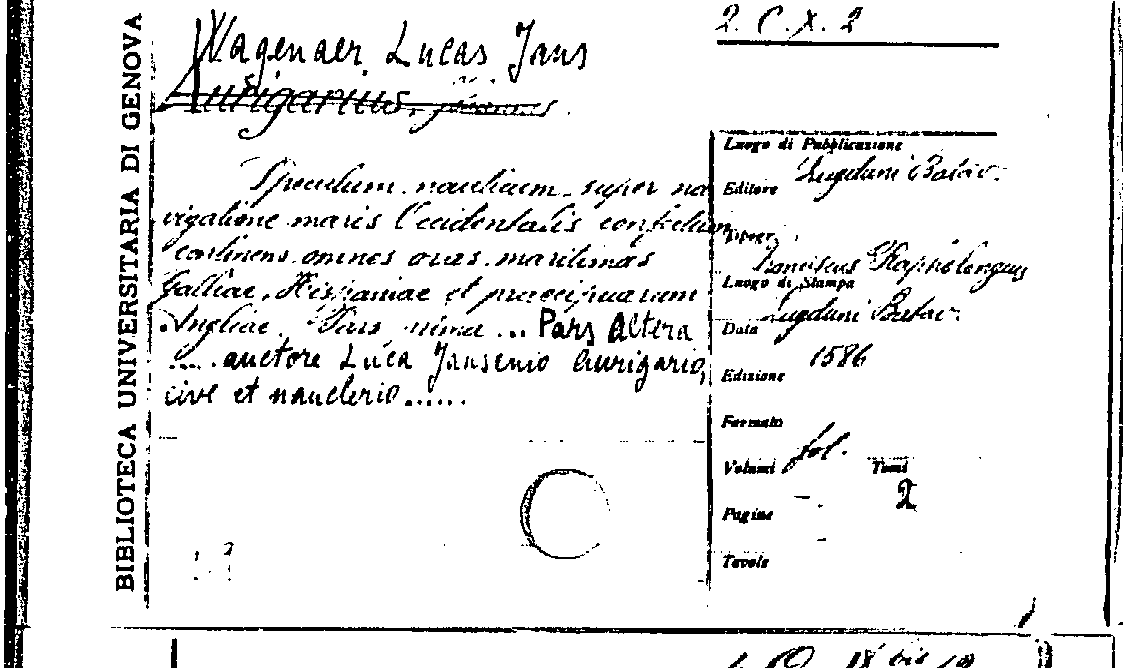 BIBLIOTECA UNIVERSITARIA DI GENOVA
2. C. X. 2
Wagenaer Lucas Jans
Aurigarius, Joannes.
Speculum nauticum super na
vigatione maris Occidentalis confectum
continens omnes oras maritimas
Galliae, Hispaniae et praecipuarum
Angliae. Pars ... Pars Altera
.... auctore Luca Jansenio Aurigario,
cive et nauclerio......
Luogo di Pubblicazione
Lugduni Batav.
Editore
Franciscus Raphelengius
Luogo di Stampa
Lugduni Batav.
Data
1586
Edizione
Formato
fol.
Volumi
Tomi
2
Pagine
Tavole
18 bis